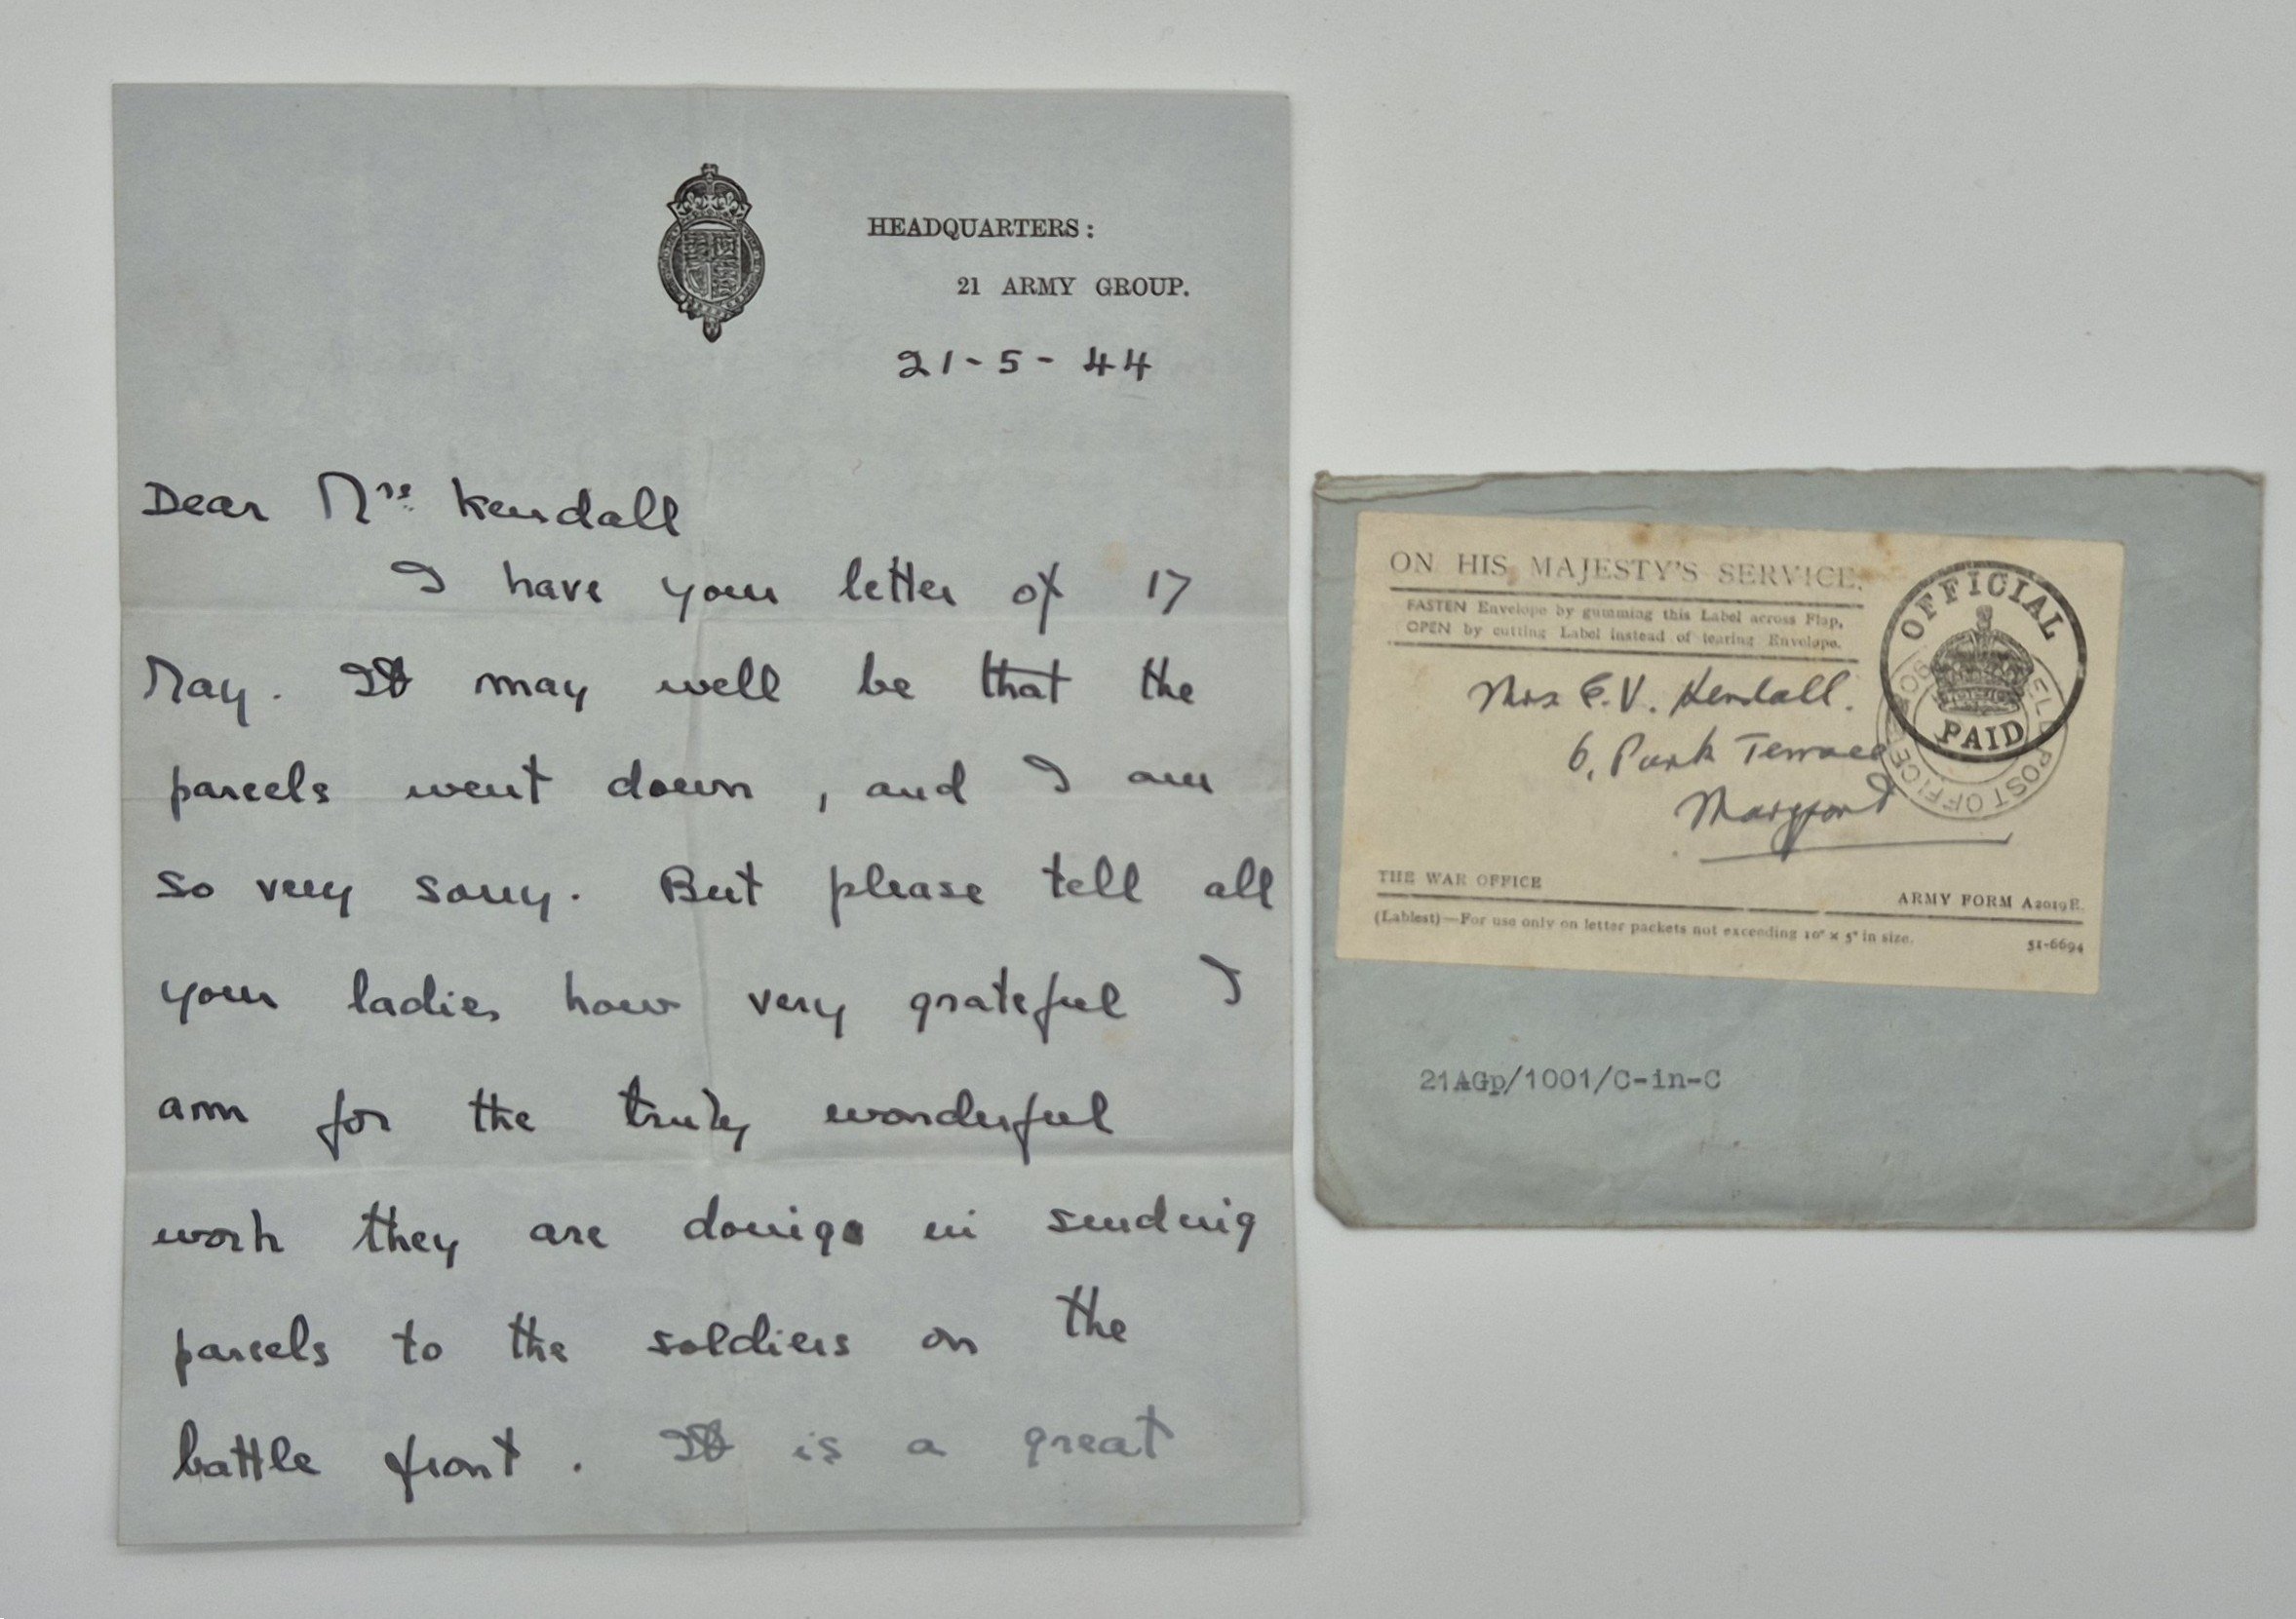 HEADQUARTERS:
21 ARMY GROUP.
21-5-44
Dear Mrs. Kendall
I have your letter of 17
May. It may well be that the
parcels went down, and I am
so very sorry. But please tell all
your ladies how very grateful I
am for the truly wonderful
work they are doing in sending
parcels to the soldiers on the
battle front. It is a great
ON HIS MAJESTY'S SERVICE.
FASTEN Envelope by gumming this Label across Flap,
OPEN by cutting Label instead of tearing Envelope.
OFFICIAL
PAID
FIELD POST OFFICE
Mrs E.V. Kendall.
6, Park Terrace
THE WAR OFFICE
ARMY FORM A2019E.
(Lablest)—For use only on letter packets not exceeding 10" × 5" in size.
51-6694
21AGp/1001/C-in-C